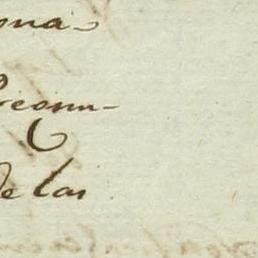 ona-
Preonu-
de las